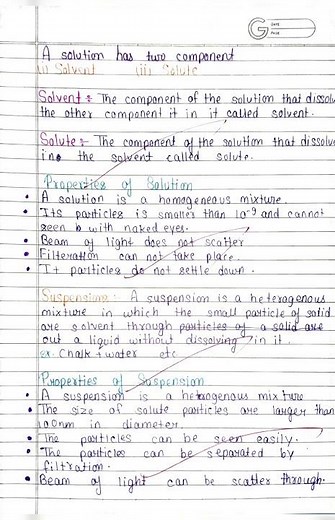 DATE
PAGE
A solution has two component
(i) Solvent (ii) Solute
Solvent :- The component of the solution that dissol
the other component it in it called solvent.
Solute :- The component of the solution that dissolve
in the solvent called solute.
Properties of Solution
• A solution is a homogeneous mixture.
• Its particles is smaller than 10-9 and cannot
seen b with naked eyes.
• Beam of light does not scatter
• Filteration can not take place.
• It particles do not settle down.
Suspensions :- A suspension is a heterogenous
mixture in which the small particle of solid
are solvent through particles of a solid are
out a liquid without dissolving in it.
ex. Chalk + water etc
Properties of Suspension
• A suspension is a hetrogenous mixture
• The size of solute particles are larger than
100nm in diameter.
• The particles can be seen easily.
• The particles can be separated by
filtration.
• Beam of light can be scatter through.